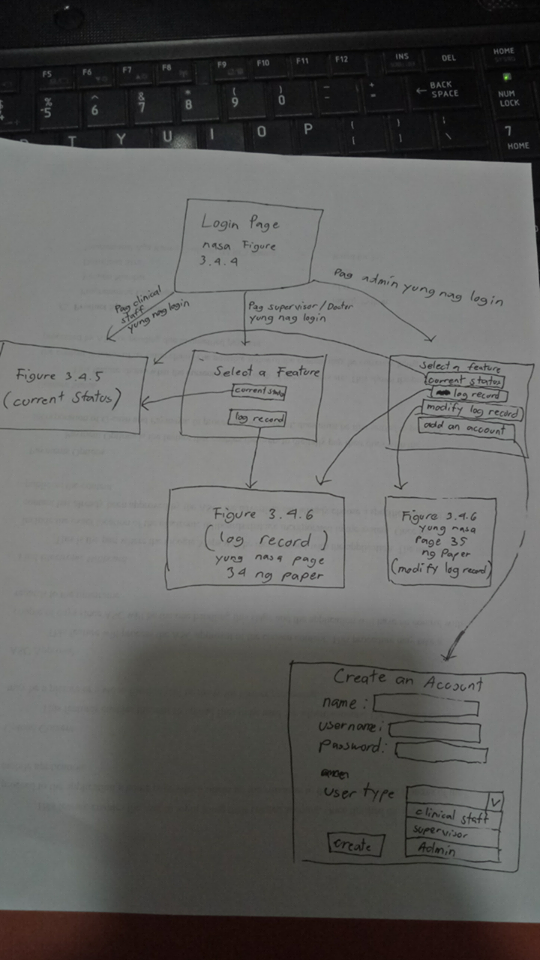 F5 F6 F7 F8 F9 F10 F11 F12 INS DEL HOME
% 5 ^ 6 & 7 * 8 ( 9 ) 0 BACK SPACE NUM LOCK
T Y U I O P 7 HOME
Login Page
nasa Figure
3.4.4
Pag clinical
staff
yung nag login
Pag supervisor / Doctor
yung nag login
Pag admin yung nag login
Figure 3.4.5
(current Status)
Select a Feature
current status
log record
Select a feature
current status
log record
modify log record
add an account
Figure 3.4.6
(log record)
yung nasa page
34 ng paper
Figure 3.4.6
yung nasa
Page 35
ng Paper
(modify log record)
Create an Account
name :
username:
Password:
user type V
clinical staff
supervisor
Admin
create